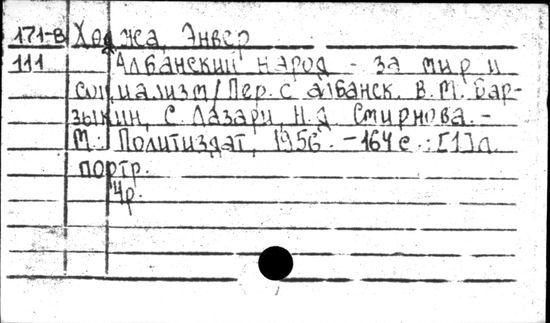 171-8 Ходжа, Энвер
111 Албанский народ - за мир и
социализм / Пер. с албанск. В.М. Бар-
зыкин, С. Лазари, Н.Д. Смирнова. -
М.: Политиздат, 1956. - 164 с.: [1] л.
портр.
4р.